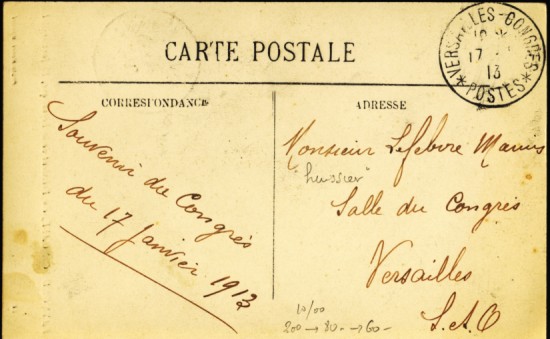 CARTE POSTALE
VERSAILLES-CONGRÈS
17
13
*POSTES*
CORRESPONDANCE
ADRESSE
Souvenir du Congrès
du 17 Janvier 1913
Monsieur Lefebvre
"huissier"
Salle du Congrès
Versailles
S. et O
10/00
200 → 80- → 60-